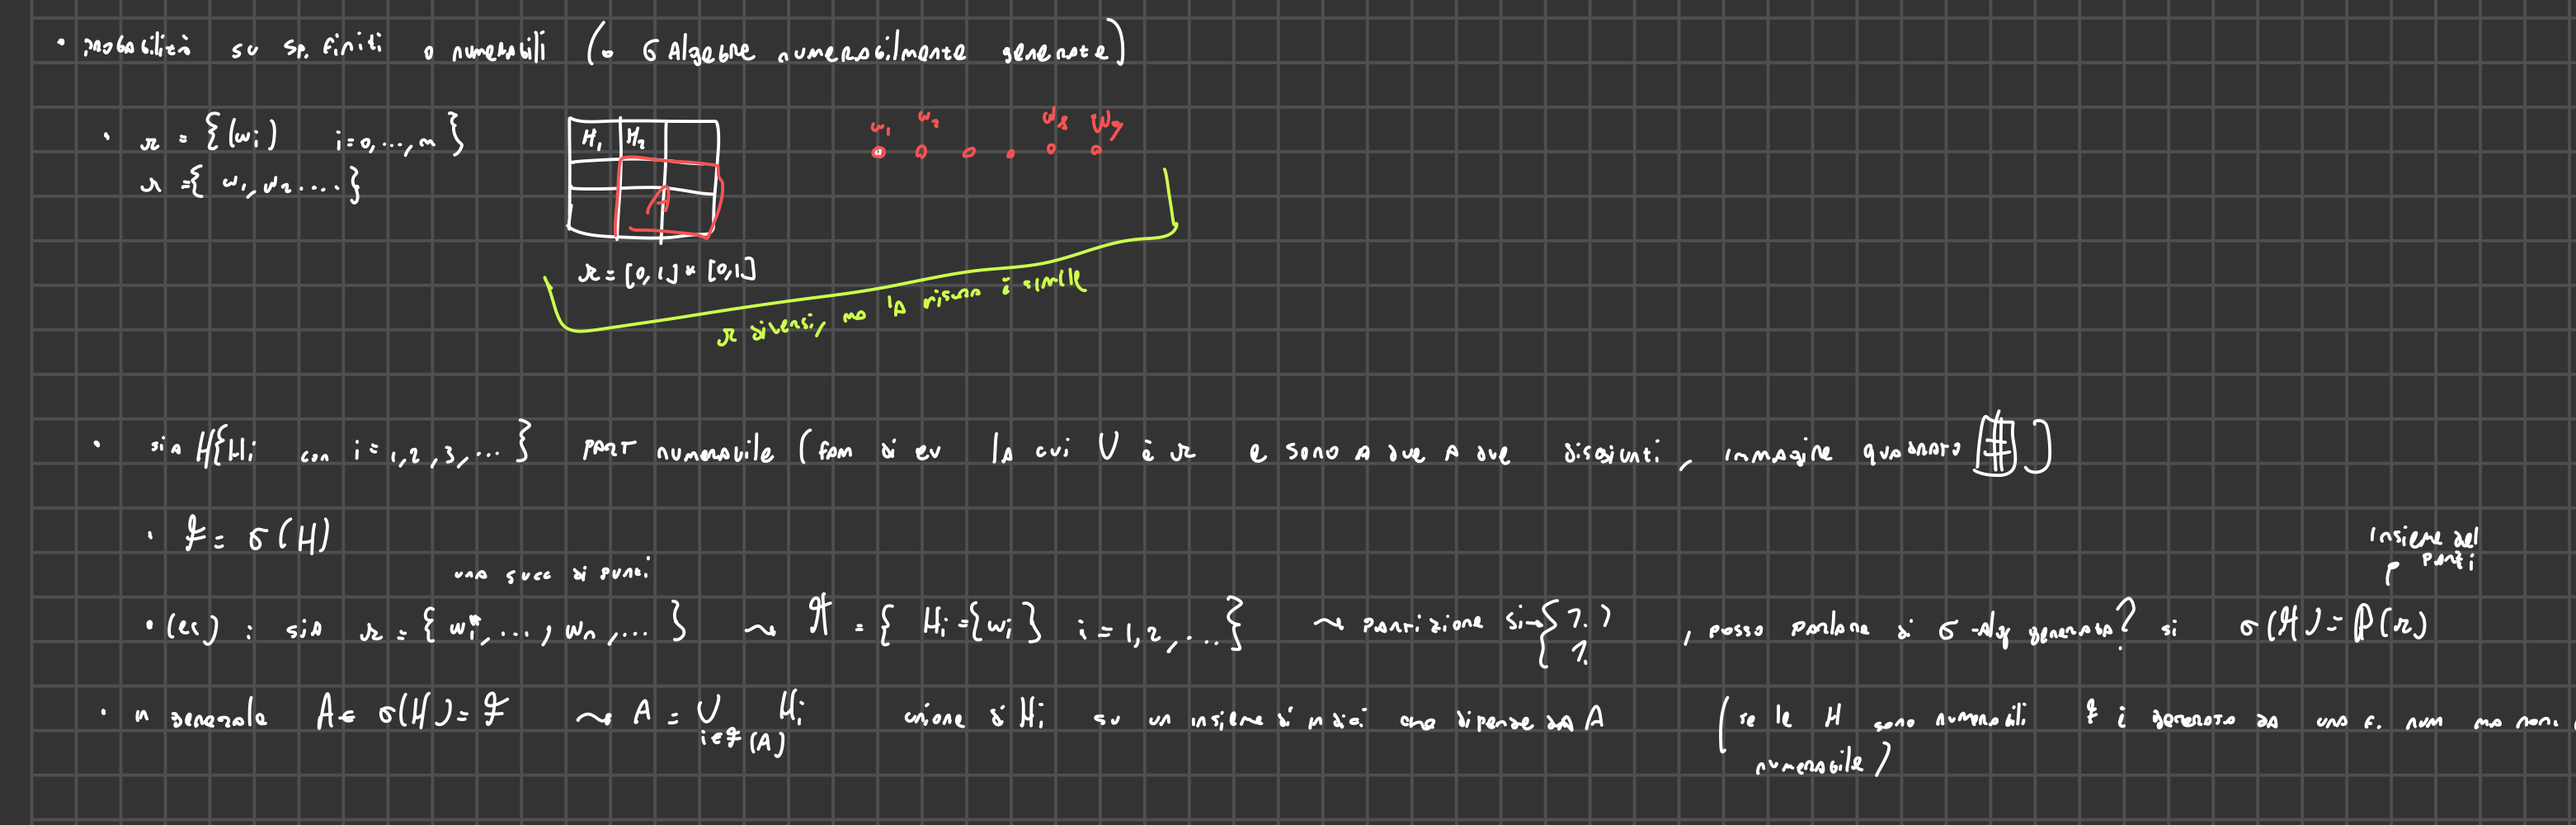 • probabilità su sp. finiti o numerabili (o σ Algebre numerabilmente generate)
• Ω = {(ωi) i=0,...,n}
Ω = { ω1, ω2 .... }
H1 H2
A
Ω = [0,1] * [0,1]
ω1 ω2 ω8 ω9
Ω diversi, ma la misura è simile
• sia H{Hi con i = 1,2,3,...} PART numerabile (fam di ev la cui U è Ω e sono a due a due disgiunti, immagine quadrato )
• F = σ(H)
una succ di punti
insieme del parti
• (es) : sia Ω = { ωi, ..., ωn, ... } ~ H = { Hi = {ωi} i = 1,2,... } ~ partizione si → { 1. 1. , posso parlare di σ-Alg generata? si σ(H) = P(Ω)
• in generale A ∈ σ(H) = F ~ A = U Hi unione di Hi su un insieme di indici che dipende da A (se le H sono numerabili F è generata da una f. num ma non
i ∈ J(A)
numerabile)